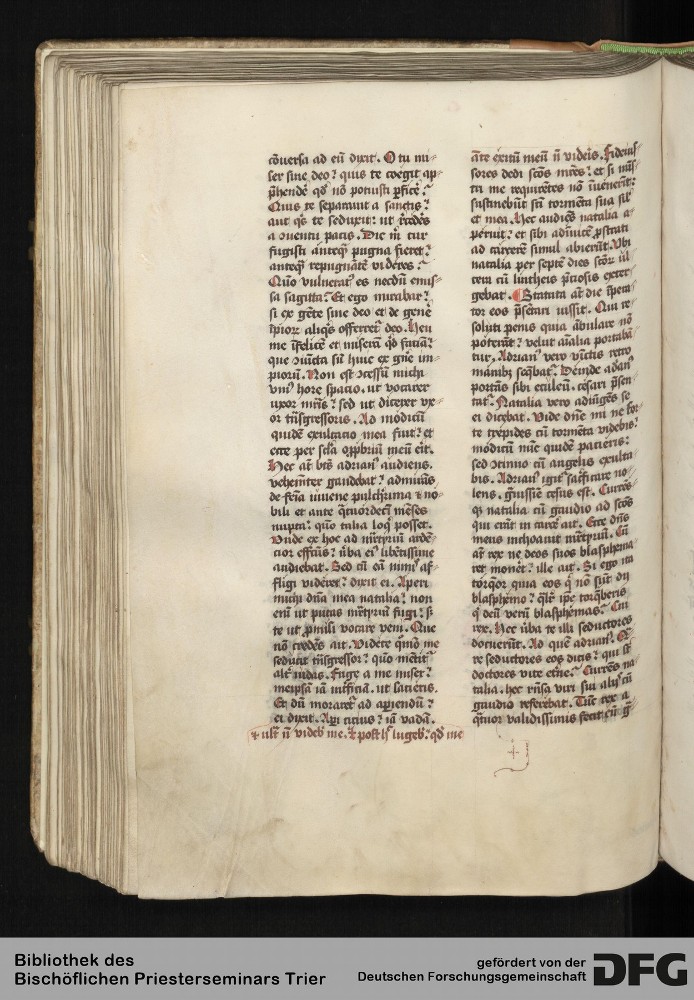 cōuersa ad eū dixit. O tu mi⸗
ser sine deo? quis te coegit ap⸗
p̄hendē qd̄ nō potuisti ꝑficē?
Quis te separauit a sanctis?
aut qs̄ te seduxit? ut r̄cedēs
a ꝯuentu pacis. Dic m̄ cur
fugisti anteqꝫ pugna fieret?
anteqꝫ repugnātē videres?
Quō vulnerat᷒ es necdū emis⸗
sa sagitta? Et ego mirabar?
si ex gēte sine deo et de genē
īpioꝝ aliqs̄ offerret᷑ deo. Heu
me īfelicē et miserā qd̄ faciā?
que ꝯiūcta sū huic ex gn̄e im⸗
pioꝝ. Non est ꝯcessū michi
vni᷒ hore spacio. ut vocarer
uxor mr̄is? sed ut dicerer ux⸗
or trn̄sgressoris. Ad modicū
quidē exultacio mea fuit? et
ecce per scl̄a opꝓbriū meū eīt.
Hec at̄ bt̄s adrian᷒ audiens.
vehem̄ter gaudebat? admirās
de fēīa iuuene pulch̄rima ⁊ no⸗
bili et ante qͣtuordecī mēses
nupta? quō talia loqͥ posset.
Vnde ex hoc ad mr̄tyriū ardē⸗
cior effc̄us? v̄ba ei᷒ libētissime
audiebat. Sed cū eā nimi᷒ af⸗
fligi videret? dixit ei. Aperi
michi dn̄a mea natalia? non
enī ut putas mr̄tyriū fugi? s̄
te ut ꝓmisi vocare veni. Que
nō credēs ait. Videte quō me
seducit trn̄sgressor? quō mētit᷑
alt̄ iudas. Fuge a me miser?
meip̄sam iā int̄ficiā. ut sacieris.
Et dū moraret᷑ ad aperiendū?
ei dixit. Aperi cicius? iā vadā.
⁊ ult᷑ n̄ videb̄ me. ⁊ post h̄ lugeb̄. qd̄ me
āte exitū meū n̄ videris. Fideius⸗
sores dedi scōs mr̄es? et si mis̄⸗
tri me requirētes nō īuenerīt?
sustinebūt scī tormēta sua sil᷑
et mea. Hec audiēs natalia a⸗
peruit? et sibi adinuicē ꝓstrati
ad carcerē simul abierūt. Vbi
natalia per septē dies scōꝝ ul⸗
cera cū lintheis p̄ciosis exter⸗
gebat. Statuta at̄ die īpera⸗
tor eos p̄sētari iussit. Qui re⸗
soluti penis quia ābulare nō
poterāt? velut aīalia portabā⸗
tur. Adrian᷒ vero vīctis retro
manibꝫ seqbat᷑. Deinde adrian᷒
portās sibi eculeū. cesari p̄sen⸗
tat᷑. Natalia vero adiūgēs se
ei dicebat. Vide dn̄e mi ne for⸗
te trepides cū tormēta videbis?
modicū nūc quidē pacieris?
sed ꝯtinuo cū angelis exulta⸗
bis. Adrian᷒ igit᷑ sac̄ficare no⸗
lens. gͣuissīe cesus est. Currēs⸗
qꝫ natalia cū gaudio ad scōs
qui erāt in carcē ait. Ecce dn̄s
meus inchoauit mr̄tyriū. Cū
at̄ rex ne deos suos blasphema⸗
ret monet? ille ait. Si ego ita
torqor quia eos qͥ nō sūt dii
blasphemo? qͣlr̄ ip̄e torqberis
qͥ deū verū blasphemas? Cui
rex. Hec v̄ba te illi seductores
docuerūt. Ad quē adrian᷒. Qͣ⸗
re seductores eos dicis? qui sūt
doctores vite etn̄e? Currēs na⸗
talia. hec rn̄sa viri sui aliis cū
gaudio referebat. Tūc rex a
qͣtuor validissimis fecit eū gͣ⸗
Bibliothek des
Bischöflichen Priesterseminars Trier
gefördert von der
Deutschen Forschungsgemeinschaft
DFG